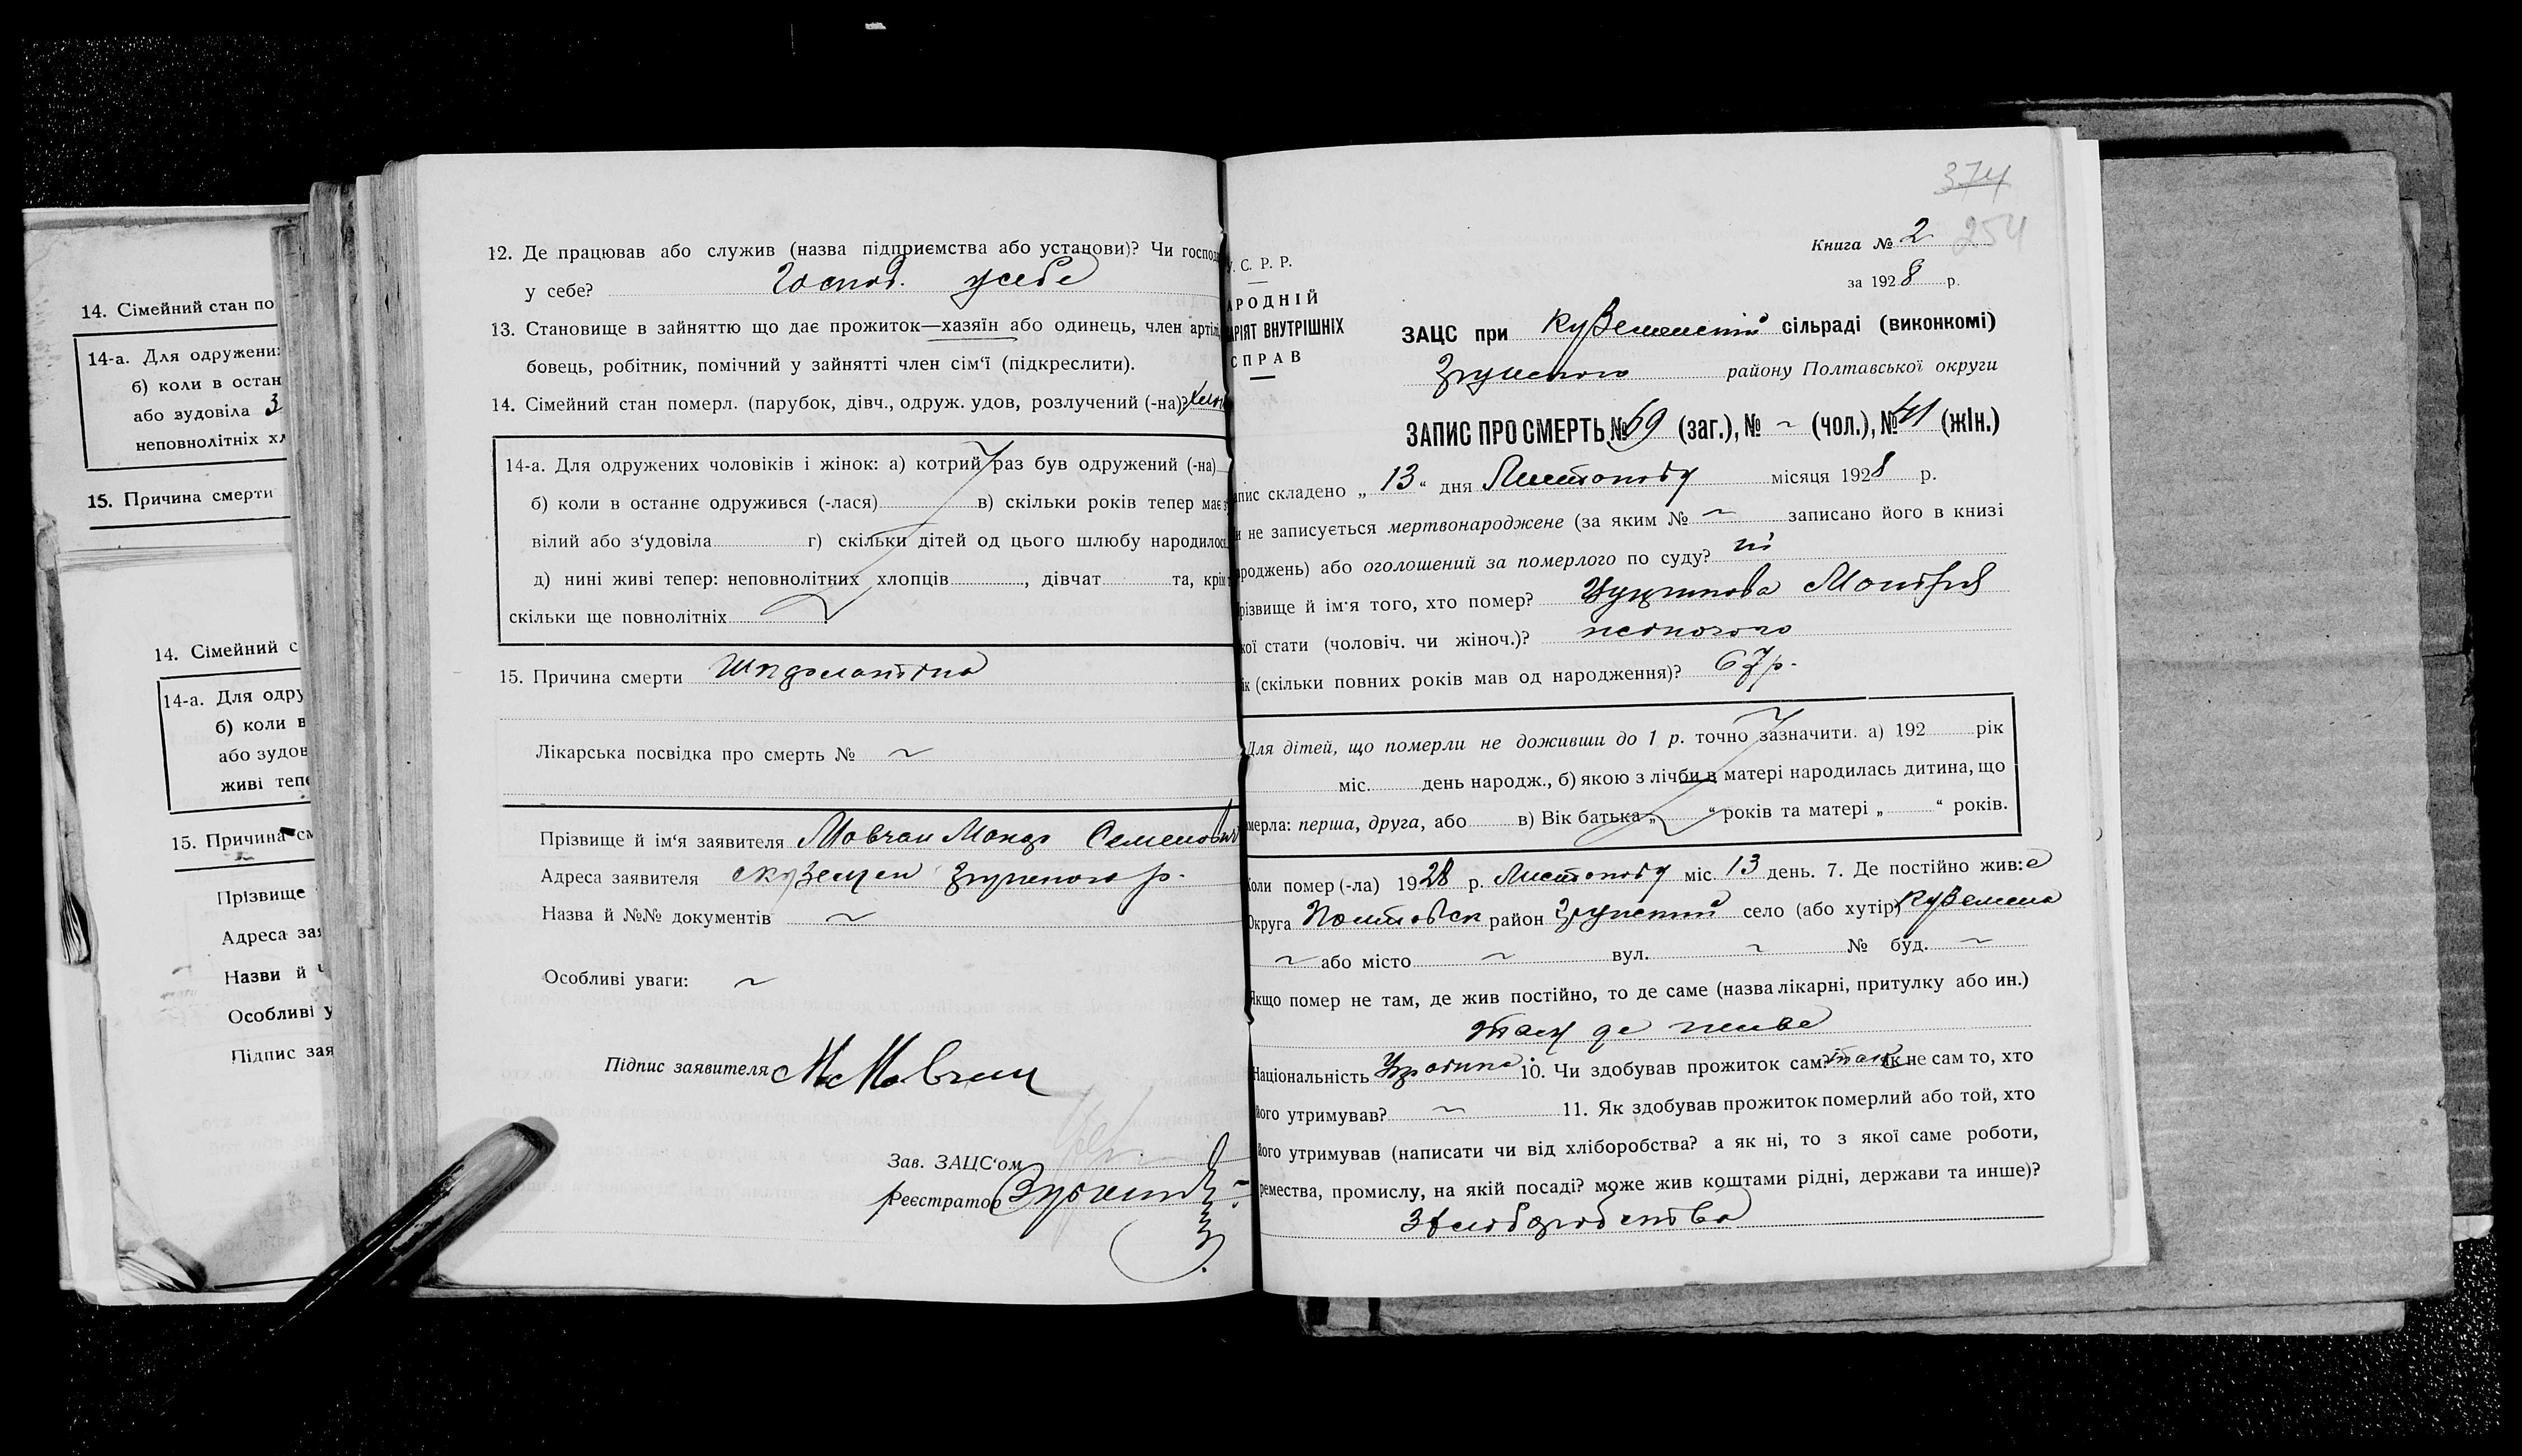 14. Сімейний стан по
14-а. Для одружени
б) коли в остан
або зудовіла З
неповнолітніх хл
15. Причина смерти
14. Сімейний с
14-а. Для одру
б) коли в
або зудов
живі тепе
15. Причина см
Прізвище
Адреса зая
Назви й ч
Особливі у
Підпис зая
12. Де працював або служив (назва підприємства або установи)? Чи господ
у себе? Господ. усебе
13. Становище в зайняттю що дає прожиток—хазяїн або одинець, член артіл
бовець, робітник, помічний у зайнятті член сім‘ї (підкреслити).
14. Сімейний стан померл. (парубок, дівч., одруж. удов, розлучений (-на)?
14-а. Для одружених чоловіків і жінок: а) котрий раз був одружений (-на)
б) коли в останнє одружився (-лася) в) скільки років тепер має з
вілий або з‘удовіла г) скільки дітей од цього шлюбу народилось
д) нині живі тепер: неповнолітних хлопців , дівчат та, крім
скільки ще повнолітніх
15. Причина смерти
Лікарська посвідка про смерть № ~
Прізвище й ім‘я заявителя Мовчан Семенович
Адреса заявителя р.
Назва й №№ документів ~
Особливі уваги: ~
Підпис заявителя М Мовчан
Зав. ЗАЦС‘ом
Реєстратор
374
254
Книга № 2
за 1928 р.
У. С. Р. Р.
АРОДНІЙ
АРІЯТ ВНУТРІШНІХ
СПРАВ
ЗАЦС при Куземенській сільраді (виконкомі)
району Полтавської округи
ЗАПИС ПРО СМЕРТЬ № 69 (заг.), № ~ (чол.), № 41 (жін.)
апис складено „ 13 “ дня Листопаду місяця 1928 р.
и не записується мертвонароджене (за яким № ~ записано його в книзі
ароджень) або оголошений за померлого по суду? ні
різвище й ім‘я того, хто помер? Мотря
кої стати (чоловіч. чи жіноч.)? жіночого
ік (скільки повних років мав од народження)? 67 р.
Для дітей, що померли не доживши до 1 р. точно зазначити. а) 192 рік
міс. день народж., б) якою з лічби в матері народилась дитина, що
мерла: перша, друга, або в) Вік батька „ “ років та матері „ “ років.
Коли помер (-ла) 1928 р. Листопаду міс. 13 день. 7. Де постійно жив: е
Округа Полтавськ район село (або хутір) Куземена
~ або місто ~ вул. ~ № буд. ~
Якщо помер не там, де жив постійно, то де саме (назва лікарні, притулку або ин.)
там де живе
Національність Українка 10. Чи здобував прожиток сам? так Як не сам то, хто
його утримував? ~ 11. Як здобував прожиток померлий або той, хто
його утримував (написати чи від хліборобства? а як ні, то з якої саме роботи,
ремества, промислу, на якій посаді? може жив коштами рідні, держави та инше)?
З хліборобства